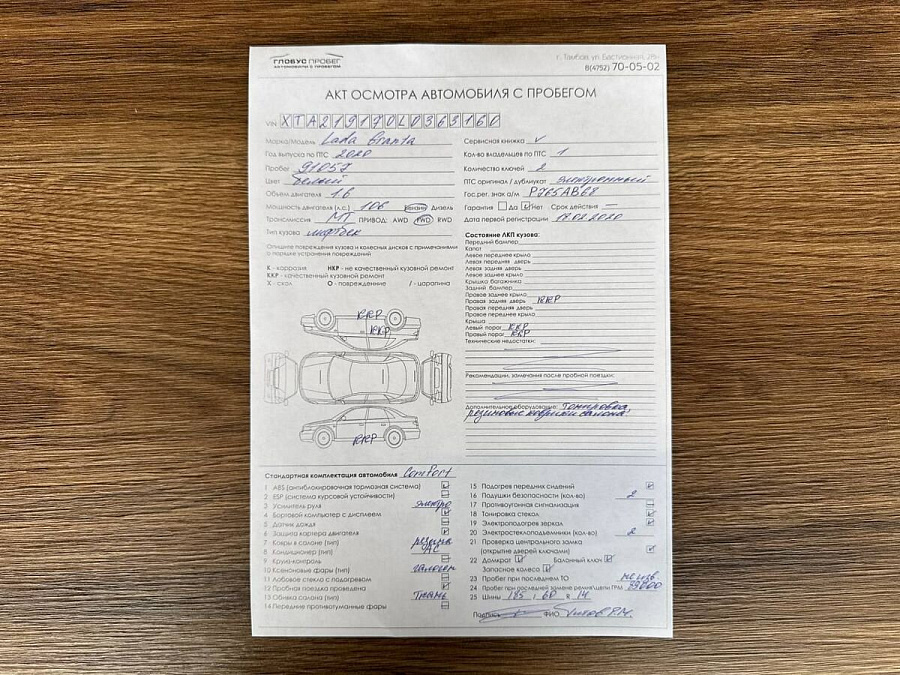 ГЛОБУС ПРОБЕГ
АВТОМОБИЛИ С ПРОБЕГОМ
г. Тамбов, ул. Бастионная,
8(4752) 70-05-02
АКТ ОСМОТРА АВТОМОБИЛЯ С ПРОБЕГОМ
VIN XTA219170L0363160
Марка/Модель Lada Granta
Год выпуска по ПТС 2020
Пробег 91057
Цвет белый
Объем двигателя 1.6
Мощность двигателя (л.с.) 106 Бензин Дизель
Трансмиссия МТ ПРИВОД: AWD FWD RWD
Тип кузова лифтбек
Сервисная книжка V
Кол-во владельцев по ПТС 1
Количество ключей 2
ПТС оригинал / дубликат электронный
Гос.рег. знак а/м Р765АВ68
Гарантия Да Нет Срок действия —
Дата первой регистрации 19.02.2020
Опишите повреждения кузова и колесных дисков с примечаниями
о порядке устранения повреждений
К - коррозия НКР - не качественный кузовной ремонт
ККР - качественный кузовной ремонт
Х - скол О - повреждение / - царапина
ККР
ККР
ККР
Состояние ЛКП кузова:
Передний бампер
Капот
Левое переднее крыло
Левая передняя дверь
Левая задняя дверь
Левое заднее крыло
Крышка багажника
Задний бампер
Правое заднее крыло
Правая задняя дверь ККР
Правая передняя дверь
Правое переднее крыло
Крыша
Левый порог ККР
Правый порог ККР
Технические недостатки:
Рекомендации, замечания после пробной поездки:
Дополнительное оборудование: Тонировка,
резиновые коврики салона.
Стандартная комплектация автомобиля Comfort
1 ABS (антиблокировочная тормозная система)
2 ESP (система курсовой устойчивости)
3 Усилитель руля электро
4 Бортовой компьютер с дисплеем
5 Датчик дождя
6 Защита картера двигателя
7 Ковры в салоне (тип) резина
8 Кондиционер (тип) АС
9 Круиз-контроль
10 Ксеноновые фары (тип) галоген
11 Лобовое стекла с подогревом
12 Пробная поездка проведена
13 Обивка салона (тип) Ткань
14 Передние противотуманные фары
15 Подогрев передних сидений
16 Подушки безопасности (кол-во) 2
17 Противоугонная сигнализация
18 Тонировка стекол
19 Электроподогрев зеркал
20 Электростеклоподъемники (кол-во) 2
21 Проверка центрального замка
(открытие дверей ключами)
22 Домкрат Балонный ключ
Запасное колесо
23 Пробег при последнем ТО не изв.
24 Пробег при последней замене ремня/цепи ГРМ
25 Шины 185 / 60 R 14
Подпись ФИО